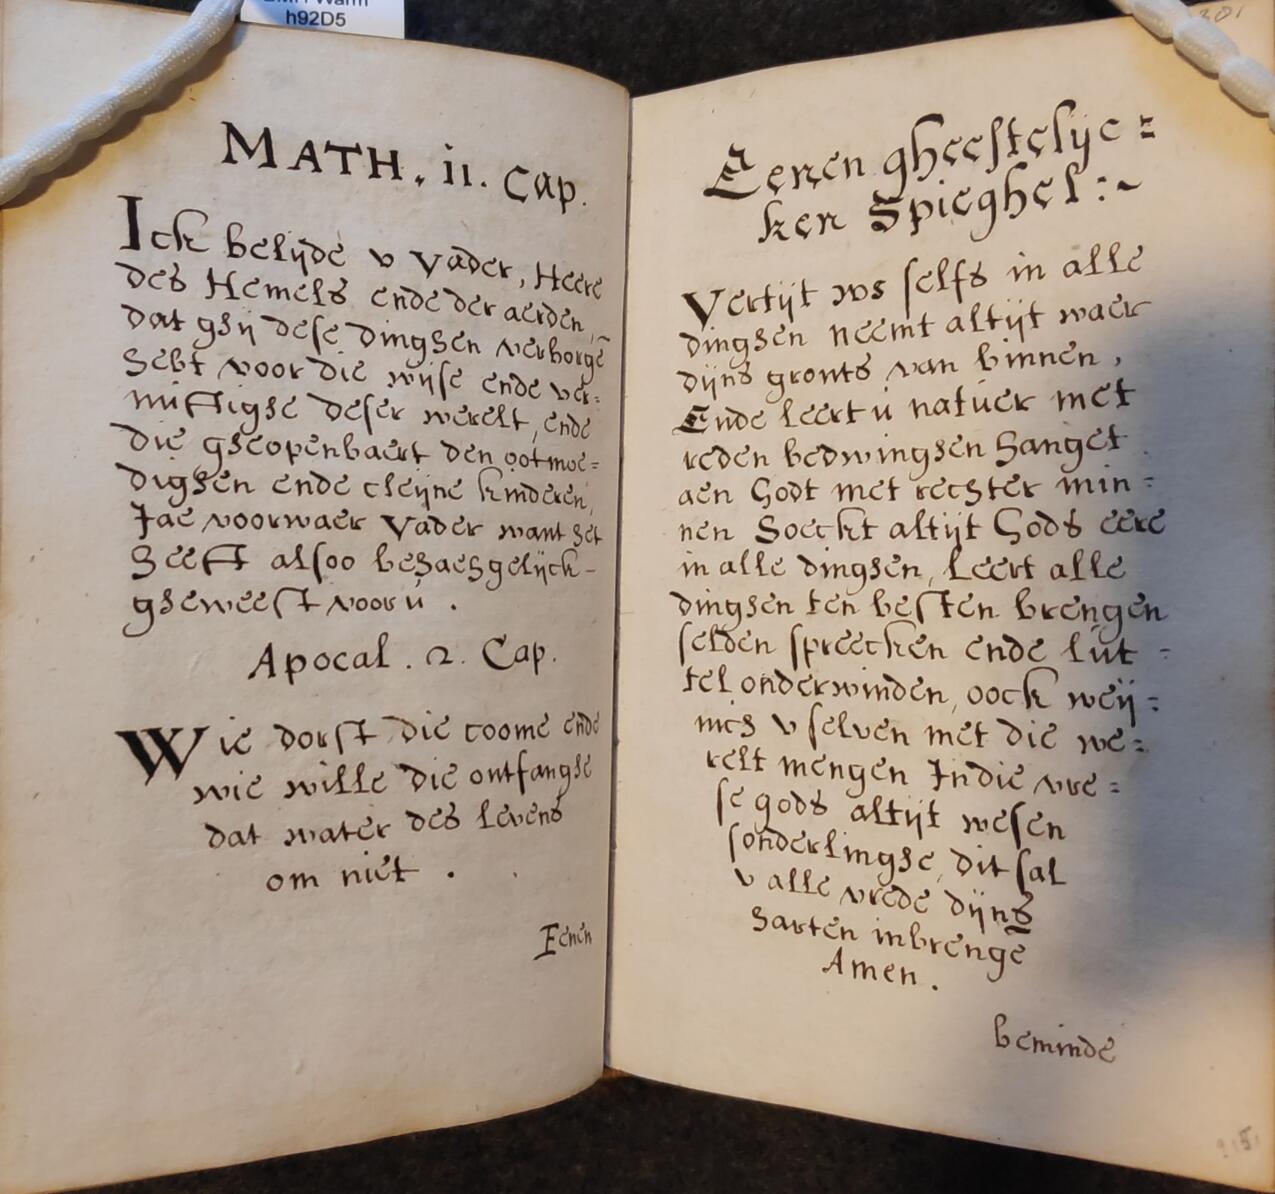 h92D5
MATH. ii. Cap.
Ick belijde v Vader, Heere
des Hemels ende der aerden,
dat ghij dese dinghen verborgē
hebt voor die wijse ende ver=
nuftighe deser werelt, ende
die gheopenbaert den ootmoe=
dighen ende cleijne kinderen,
Jae voorwaer Vader want het
heeft alsoo behaeghgelijck-
gheweest voor ú.
Apocal. 2. Cap.
Wie dorst die coome ende
wie wille die ontfanghe
dat water des levens
om niet.
Eenen
301
Eenen gheestelijc=
ken Spieghel:~
Vertijt ws selfs in alle
dinghen neemt altijt waer
dijns gronts van binnen,
Ende leert ú natúer met
reden bedwinghen Hanget
aen Godt met rechter min=
nen Soeckt altijt Gods eere
in alle dinghen, Leert alle
dinghen ten besten brengen
selden spreecken ende lút=
tel onderwinden, oock weij=
nich v selven met die we=
relt mengen Indie vre=
se gods altijt wesen
sonderlinghe, dit sal
v alle vrede dijns
harten inbrengē
Amen.
beminde